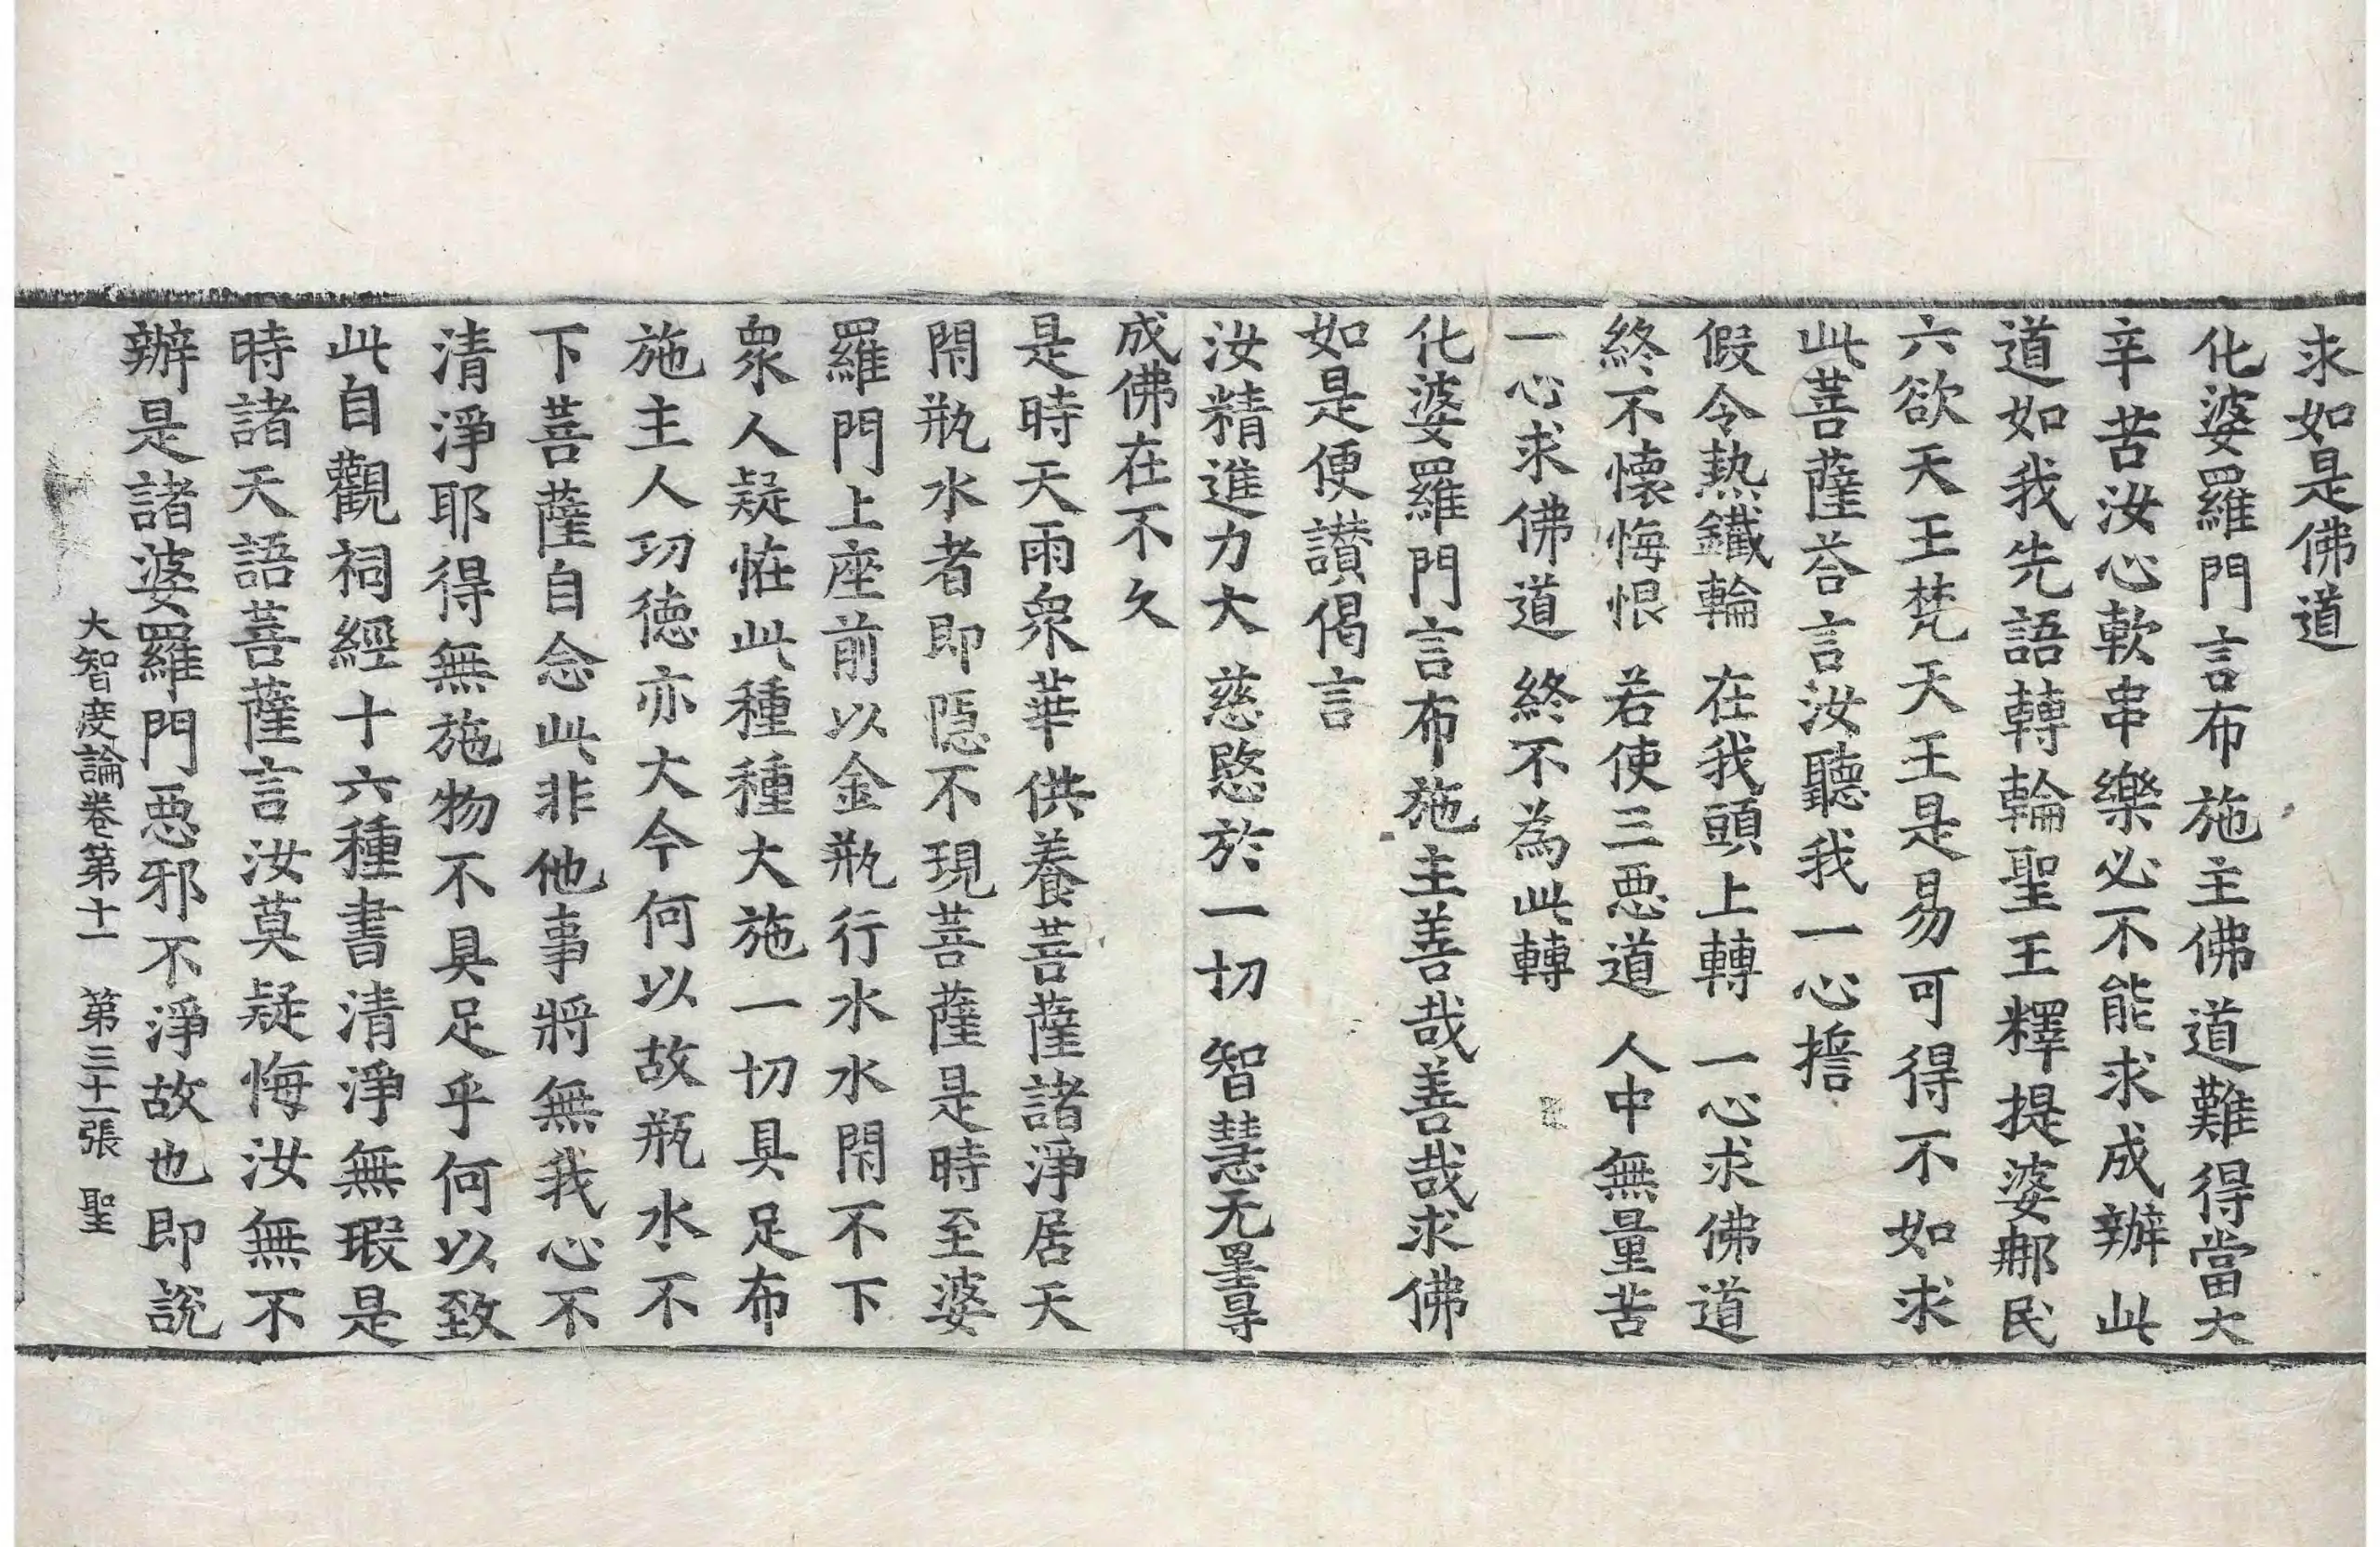 求如是佛道
化婆羅門言布施主佛道難得當大
辛苦汝心軟串樂必不能求成辦此
道如我先語轉輪聖王釋提婆那民
六欲天王梵天王是易可得不如求
此菩薩荅言汝聽我一心擔
假令熱鐵輪　在我頭上轉　一心求佛道
終不懷悔恨　若使三惡道　人中無量苦
一心求佛道　終不為此轉
化婆羅門言布施主善哉善哉求佛
如是便讃偈言
汝精進力大　慈愍於一切　智慧无罣㝵
成佛在不久
是時天雨衆華供養菩薩諸淨居天
閇瓶水者即隱不現菩薩是時至婆
羅門上座前以金瓶行水水閇不下
衆人疑恠此種種大施一切具足布
施主人功德亦大今何以故瓶水不
下菩薩自念此非他事將無我心不
清淨耶得無施物不具足乎何以致
此自觀祠經十六種書清淨無瑕是
時諸天語菩薩言汝莫疑悔汝無不
辦是諸婆羅門惡邪不淨故也即說
大智度論卷第十一　第三十一張　聖